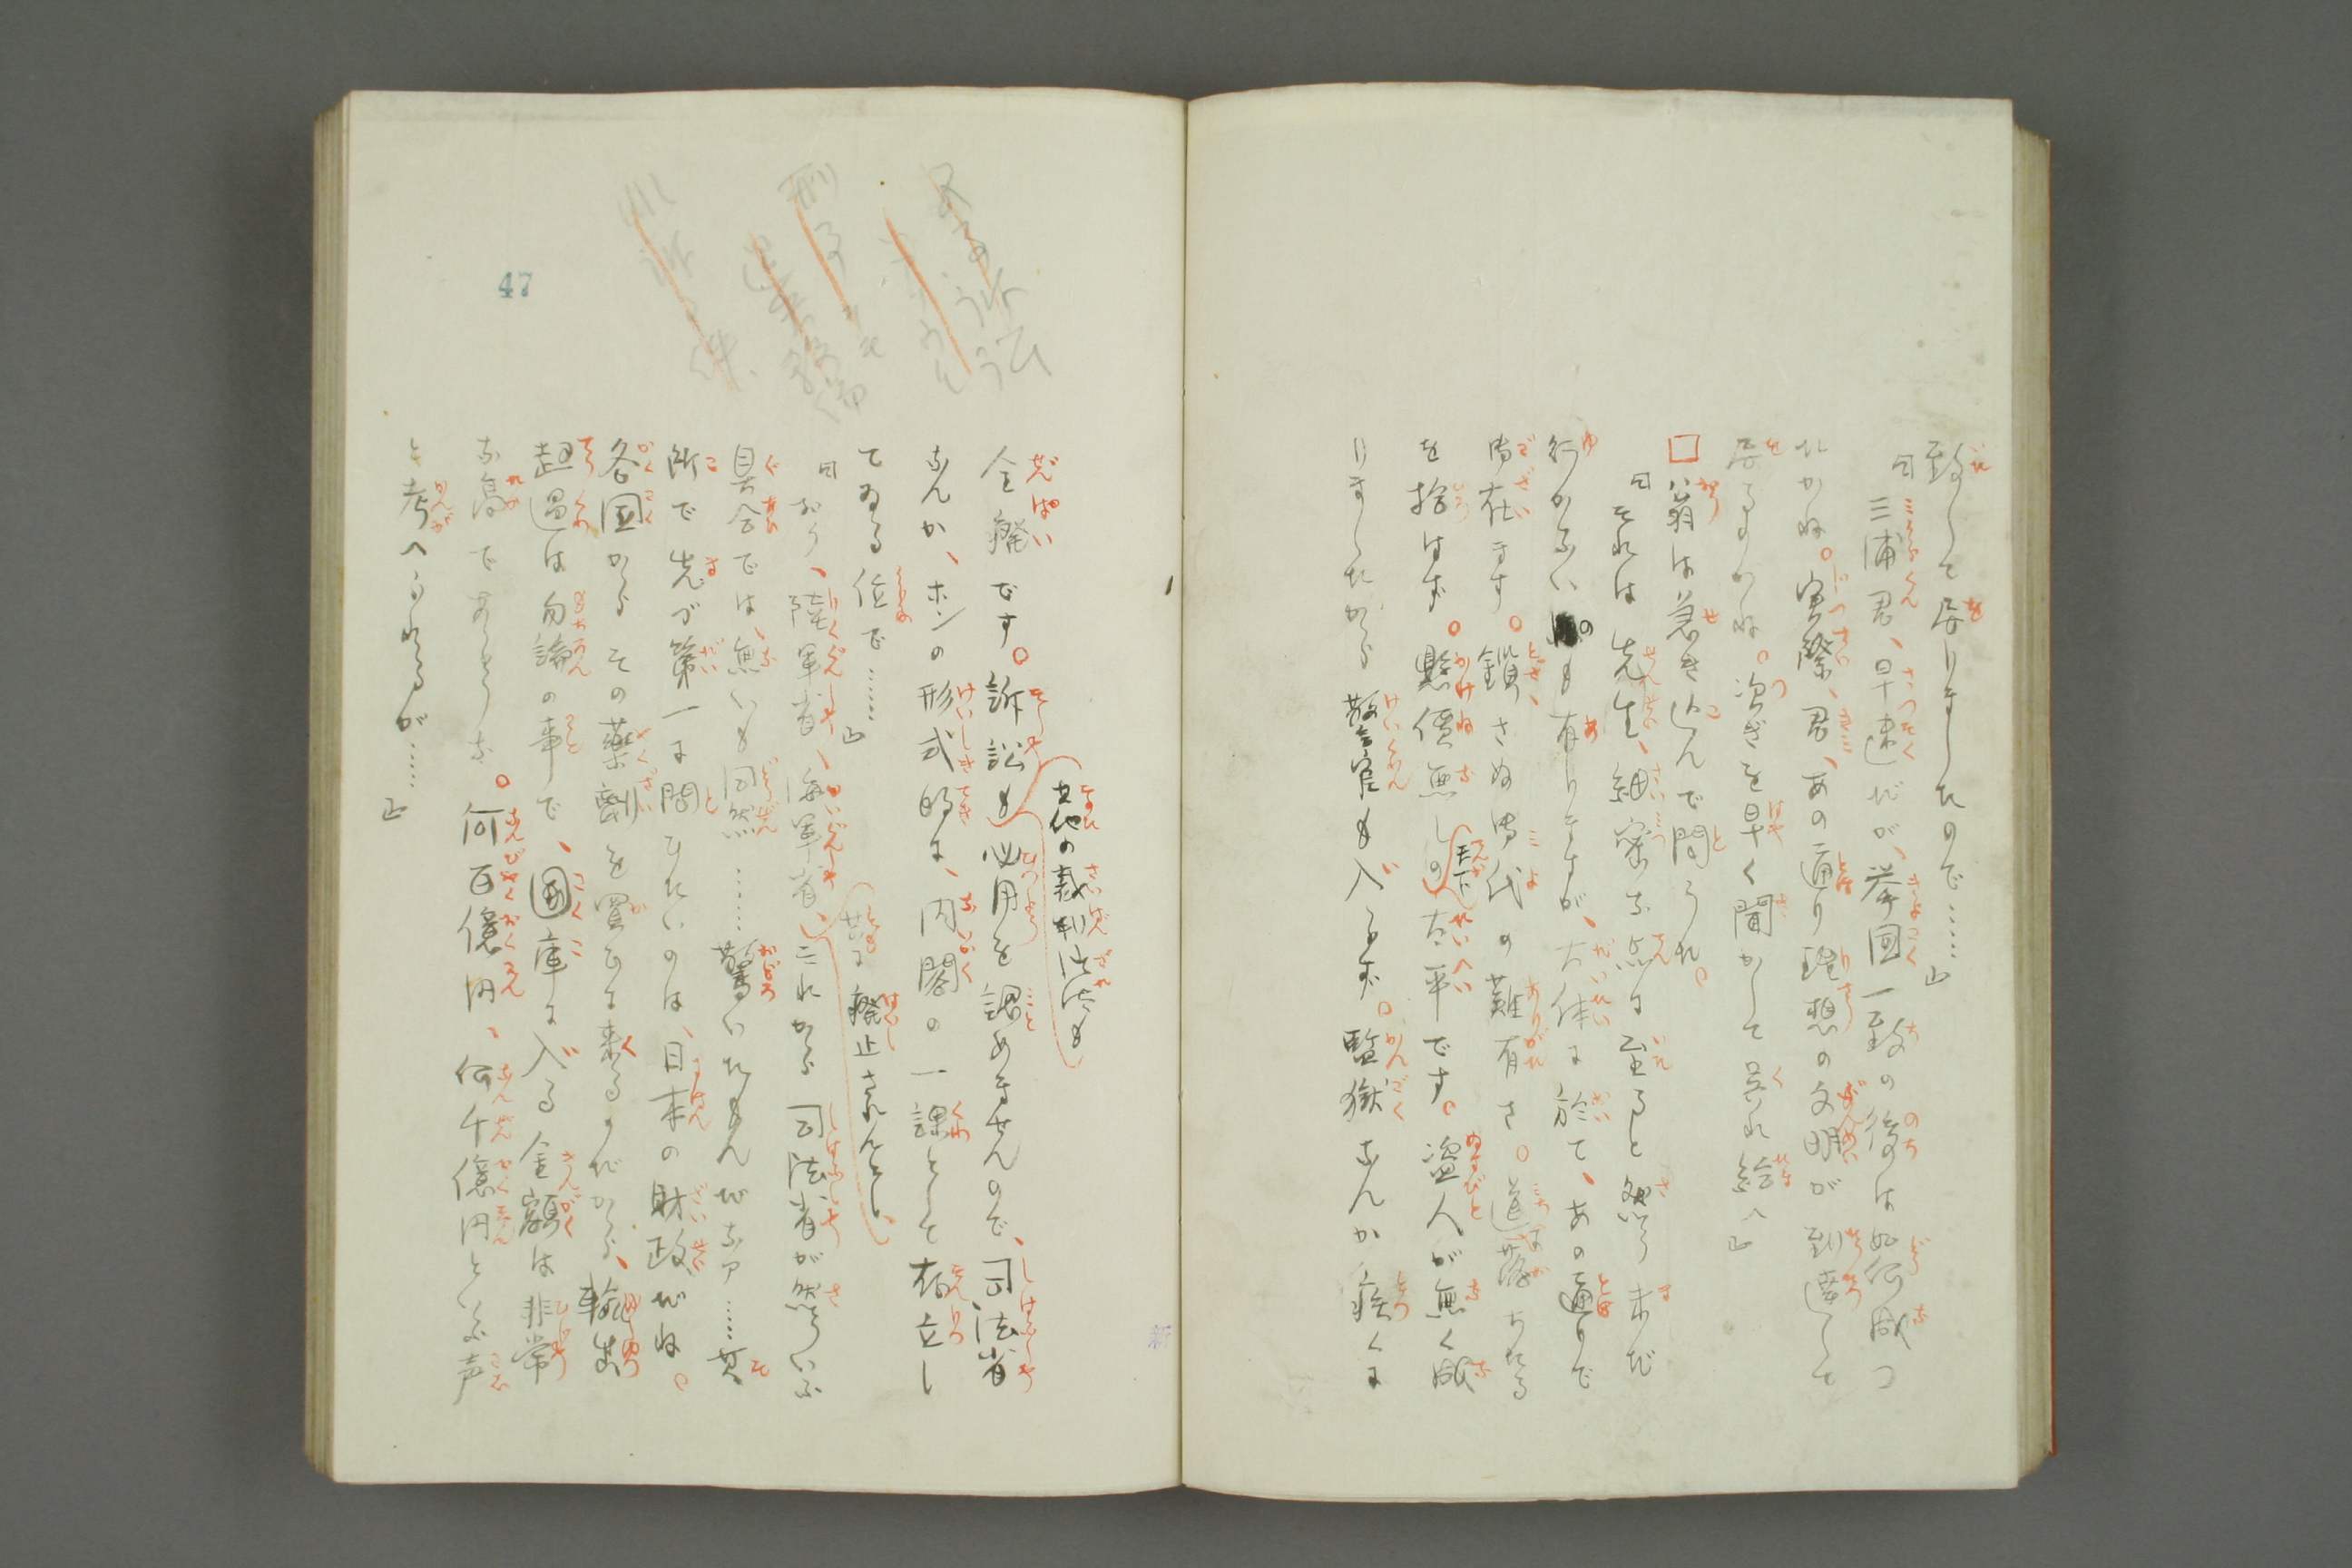 致して居りましたので……」
「三浦君、早速だが、挙国一致の後は如何成つ
たかね。実際、君、あの通り理想の文明が到達して
居るかね。次ぎを早く聞かして呉れ給へ」
□翁は急き込んで問うれ。
「それは先生、細密な点に至ると然う未だ
行かないのも有りますが、大体に於て、あの通りで
御在ます。鎖さぬ御代の難有さ。道に落ちたる
を捨はず。懸価無しの天下太平です。盗人が無く成
りましたから警官も入らず。監獄なんか疾くに
全廃です。訴訟も必用を認めませんので、司法省
其他の裁判沙汰も
なんか、ホンの形式的に、内閣の一課として存立し
てゐる位で……」
共に廃止されんとし、
「おう、陸軍省、海軍省、それから司法省が然ういふ
具合では、無いも同然……驚いたもんだなア……其
所で先づ第一に問ひたいのは、日本の財政だね。
各国からその薬剤を買ひに来るのだから、輸出
超過は勿論の事で、国庫に入る金額は非常
な高であらうな。何百億円、何千億円といふ声
と考へられるが……」
47